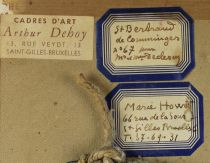 CADRES D'ART
Arthur Deboy
13, RUE VEYDT, 13
SAINT-GILLES-BRUXELLES
St Bertrand
de Comminges
n° 67
Marie Howet
66 rue de la
St Gilles Bruxelles
T. 37.69.31